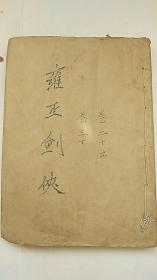 雍正劍俠
卷二十五
卷三十